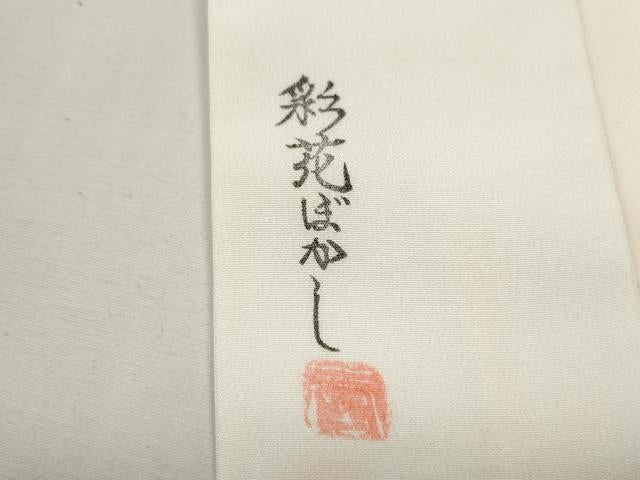 彩苑ぼかし